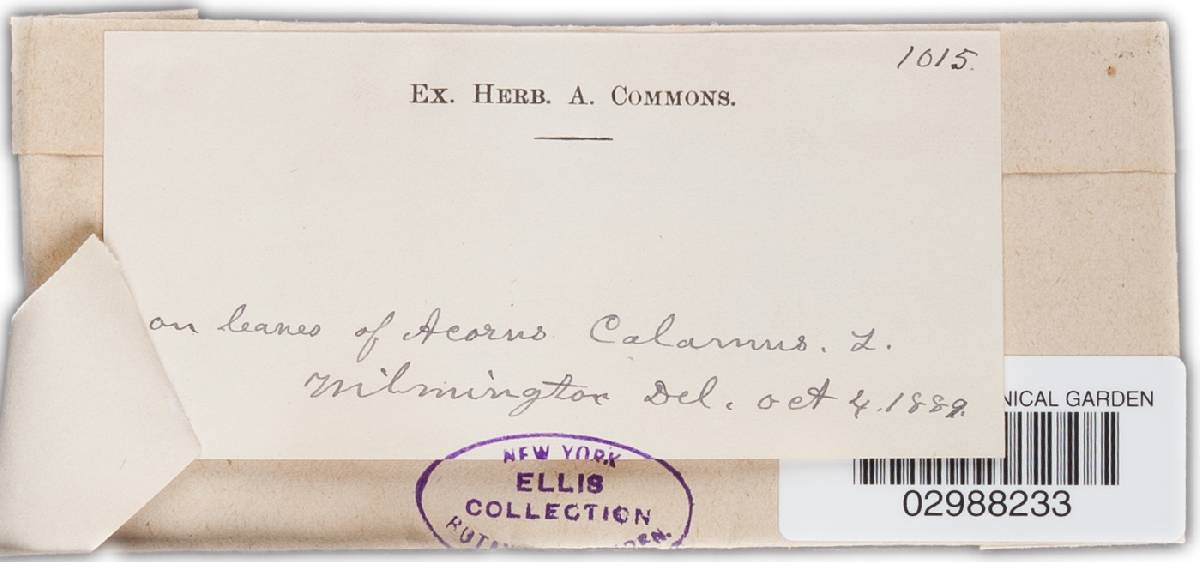 1015.
EX. HERB. A. COMMONS.
on leaves of Acorus Calamus. L.
Wilmington Del. oct 4. 1889.
NICAL GARDEN
02988233
NEW YORK
ELLIS
COLLECTION